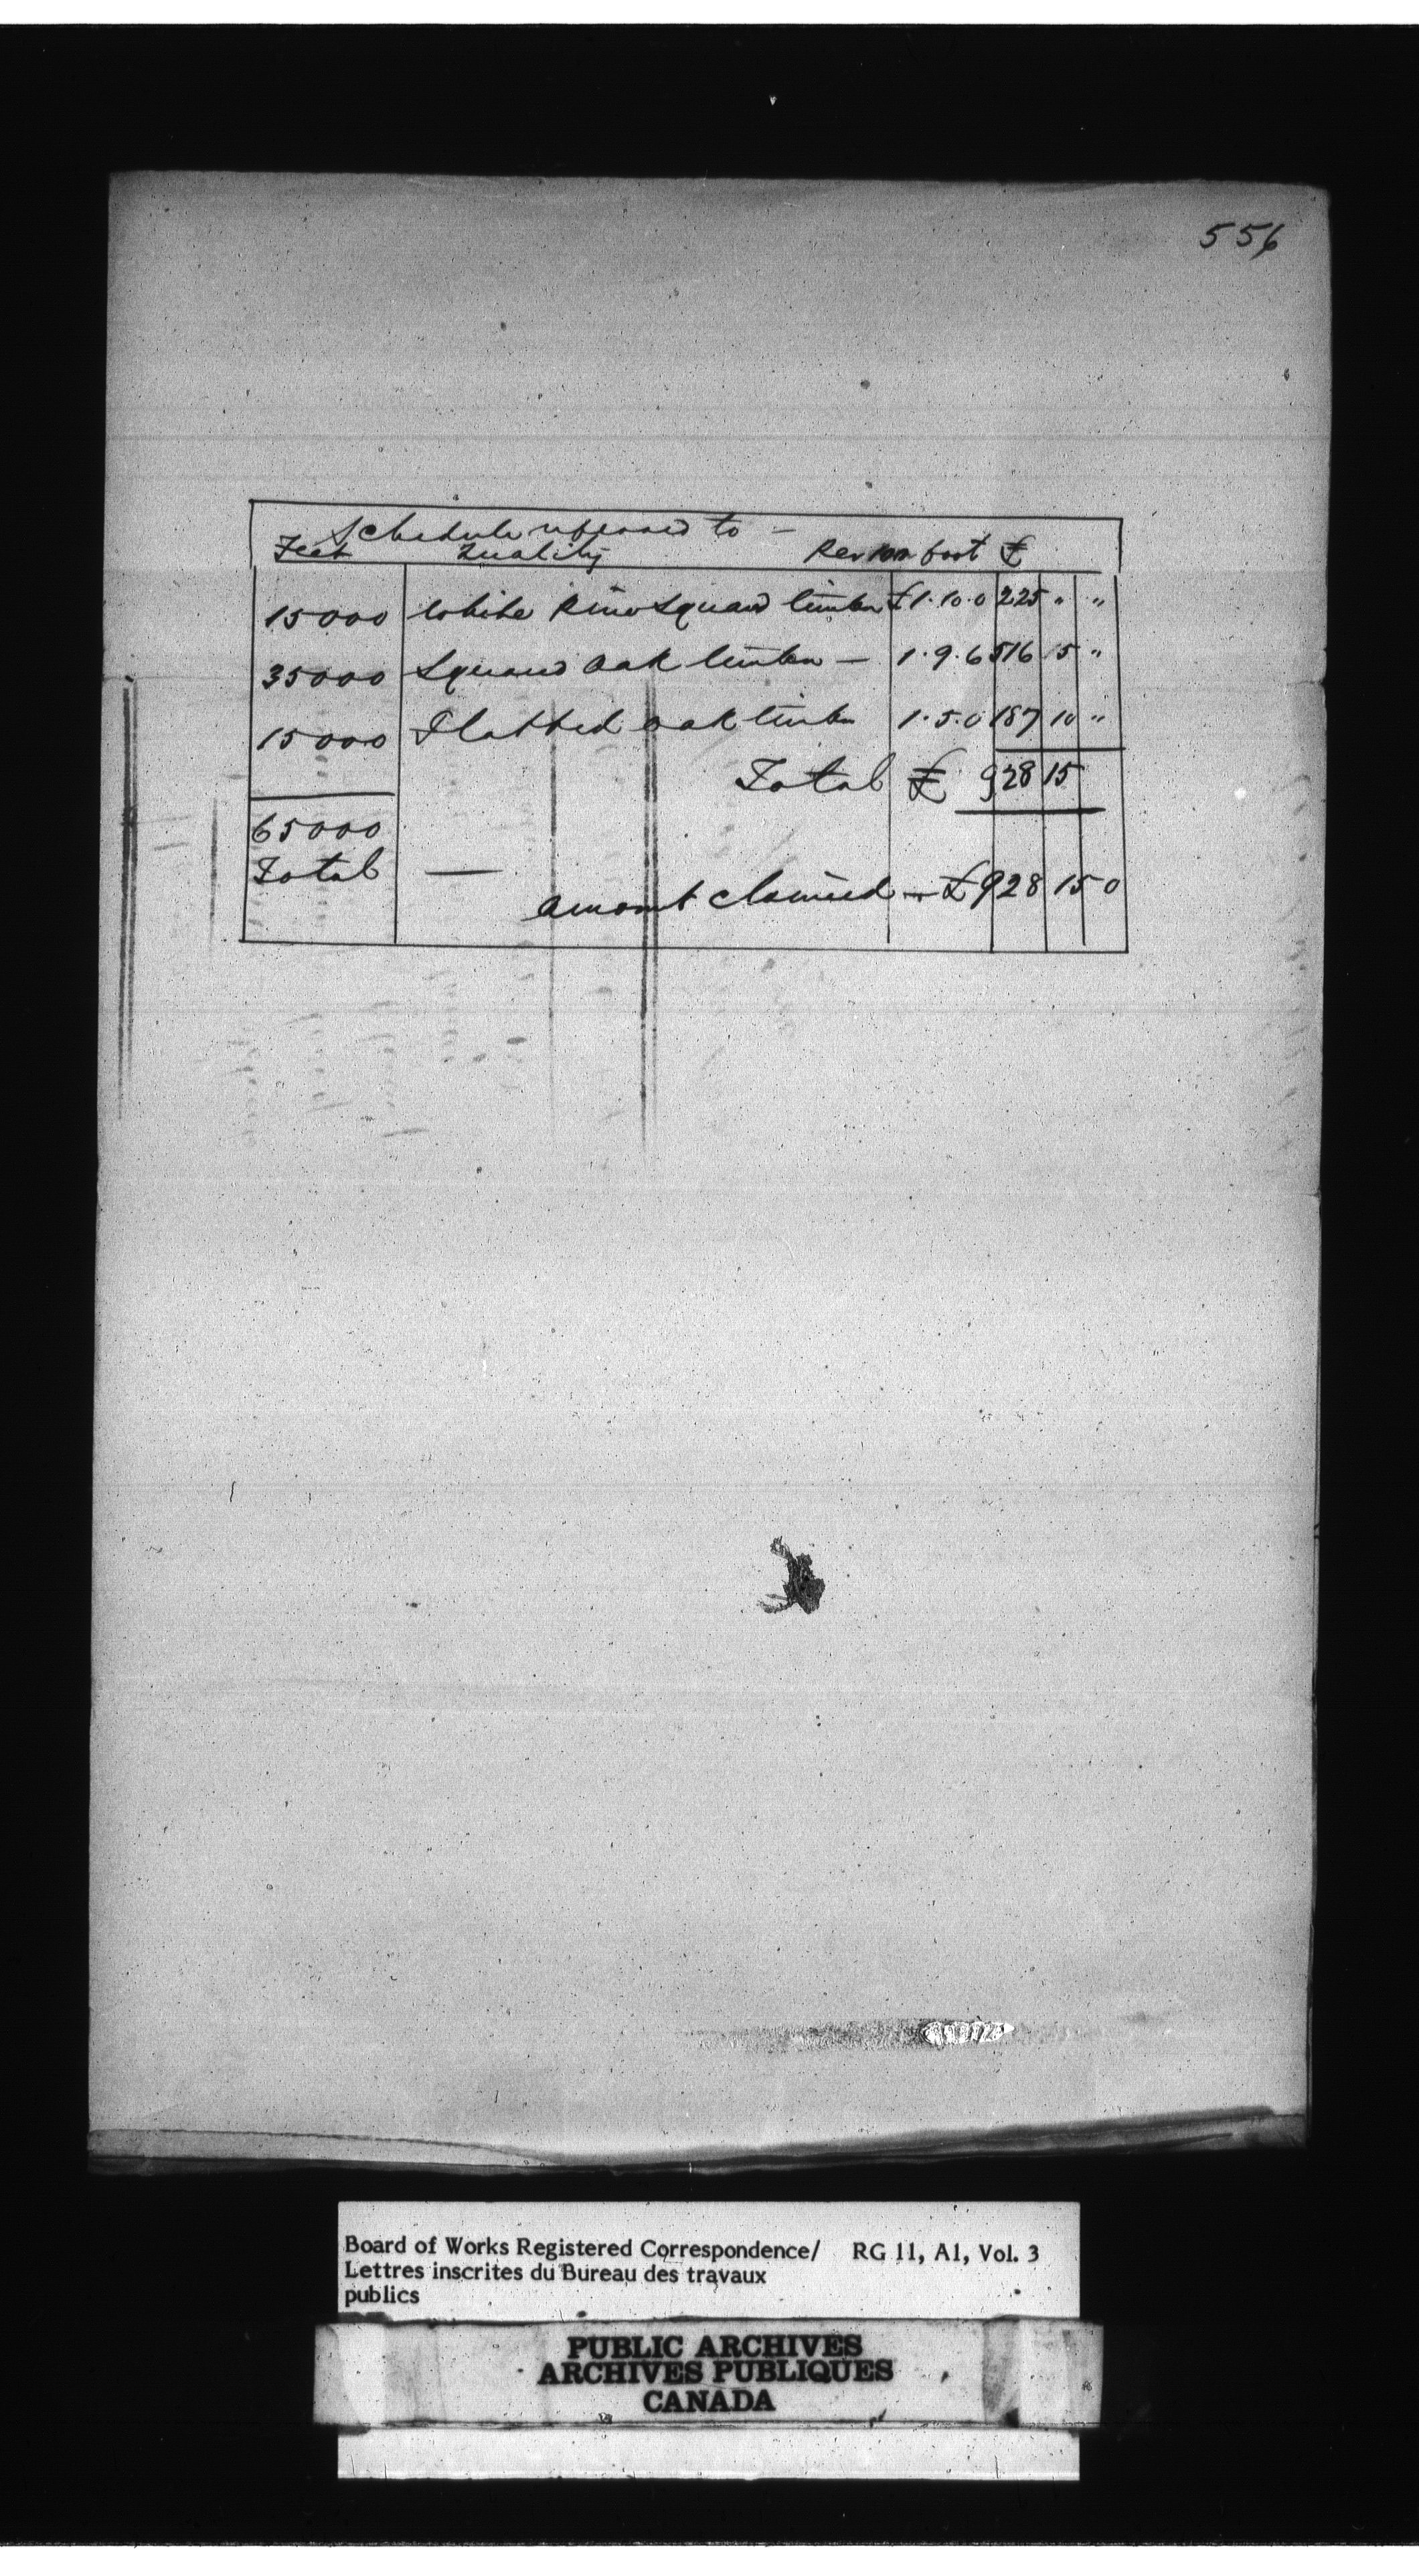 556
Schedule referred to —
Feet Quality Per 100 foot £
15000 White Pine Square timber £1.10.0 225 " "
35000 Square Oak timber — 1.9.6 516 15 "
15000 Flatted oak timber 1.5.0 187 10 "
Total £ 928 15
65000
Total —
amount claimed — £928 15 0
Board of Works Registered Correspondence/ RG 11, A1, Vol. 3
Lettres inscrites du Bureau des travaux
publics
PUBLIC ARCHIVES
ARCHIVES PUBLIQUES
CANADA